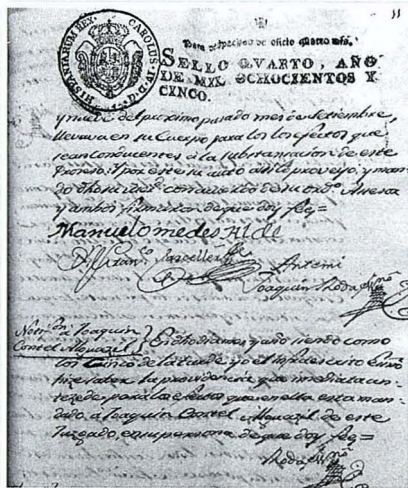 11
HISPANIARUM REX. CAROLUS IV. D. G.
Para despachos de oficio quatro mrs.
SELLO QVARTO, AÑO
DE MIL OCHOCIENTOS Y
CINCO.
y nueve del proximo pasado mes de Setiembre,
llevava en su Cuerpo para los efectos que
sean conducentes a la substanciacion de este
Proceso: Y por este su auto asi lo proveyo, y man
do dho con acuerdo de su Asesor
y ambos firmaron de que doy fee=
Manuel omedes Alde
Antemi
Joaquin Roda
a Joaquin
Contel Alguazil
En dho dia mes y año siendo como
las Cinco de la tarde yo el Infraescrito
hize saber la providencia que immediata an-
tezede para los efectos que en ella esta man-
dado, a Joaquin Contel Alguazil de este
Juzgado, en su persona de que doy fee=
Roda